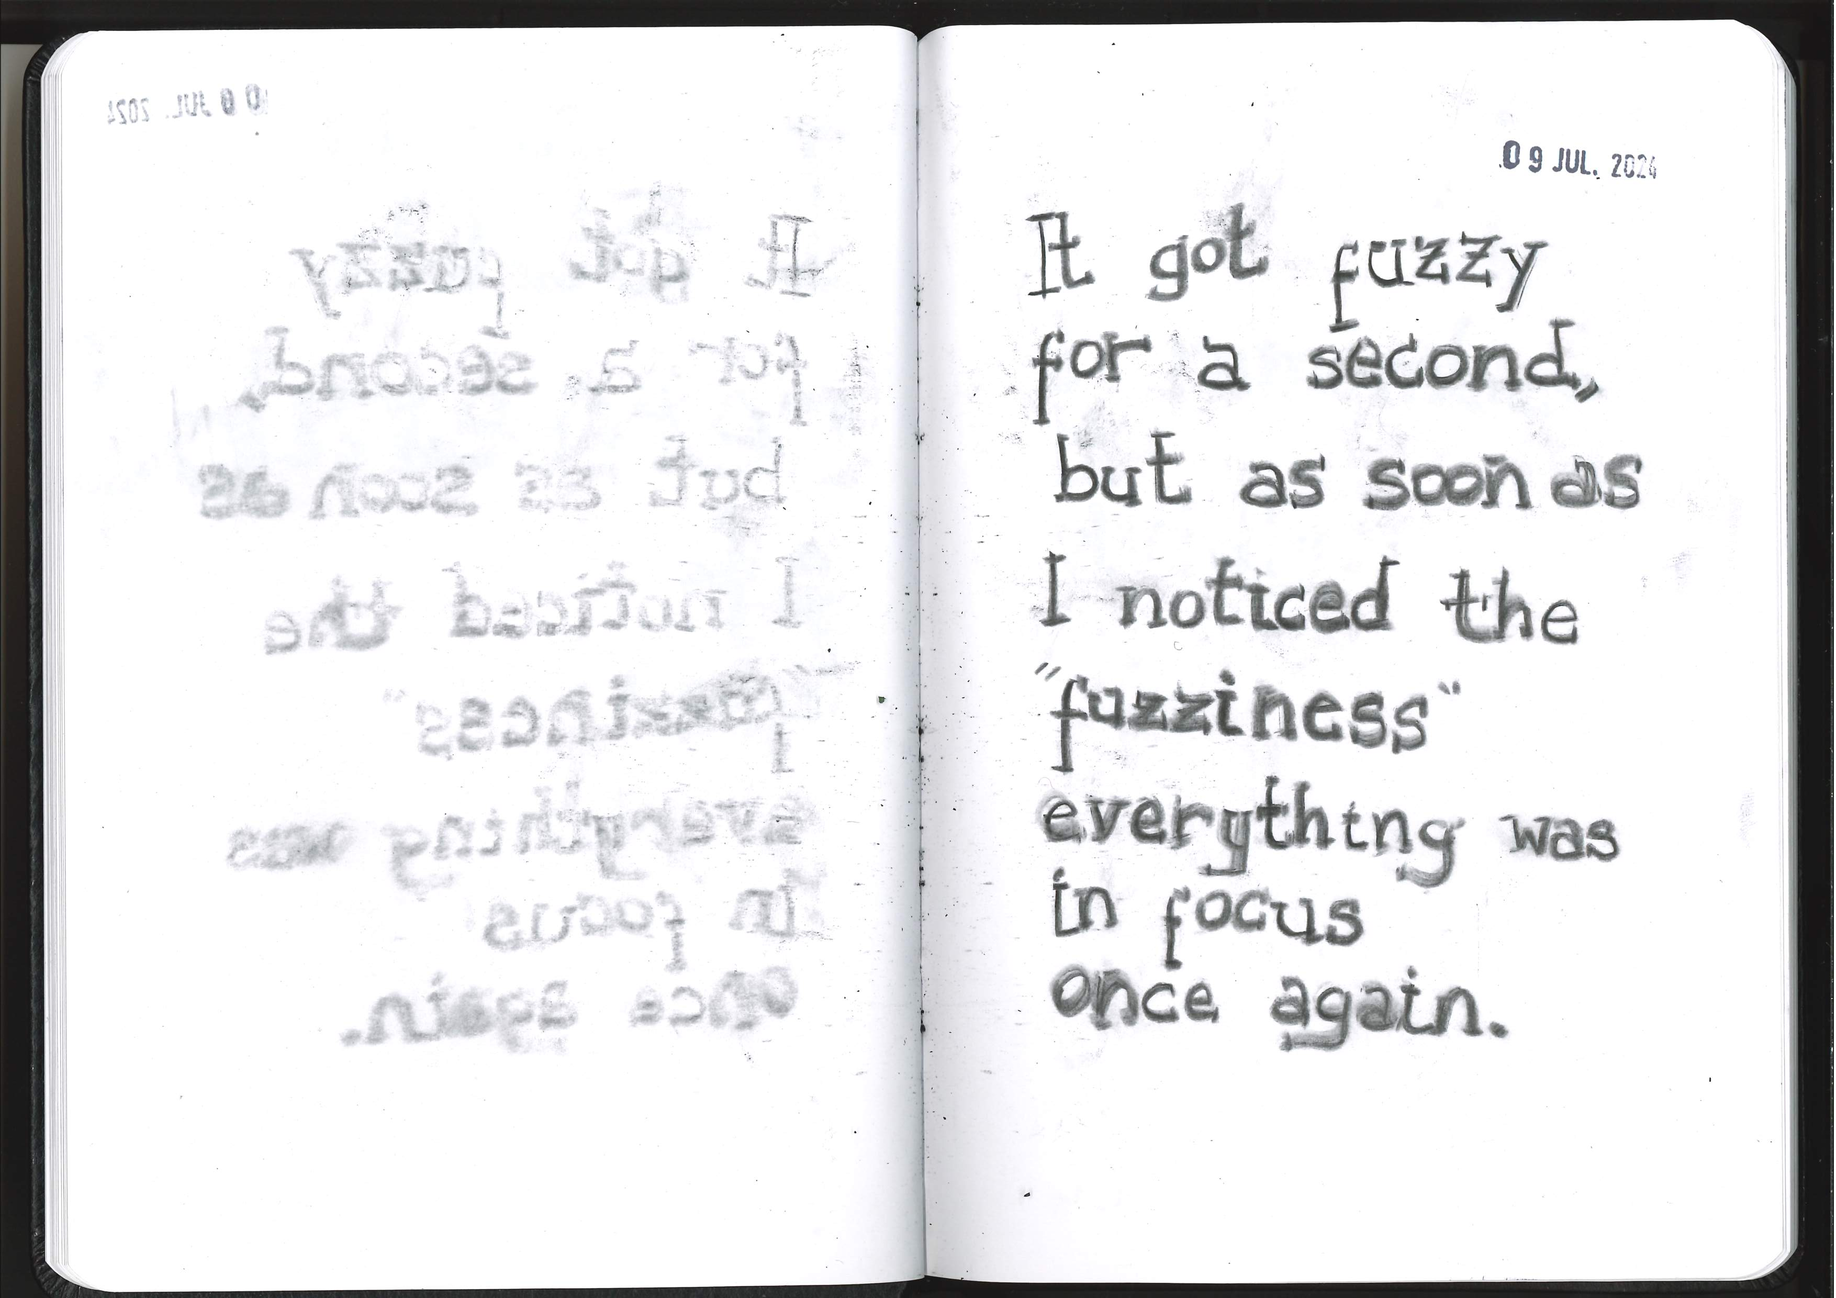 09 JUL. 2024
It got fuzzy
for a second,
but as soon as
I noticed the
"fuzziness"
everything was
in focus
once again.